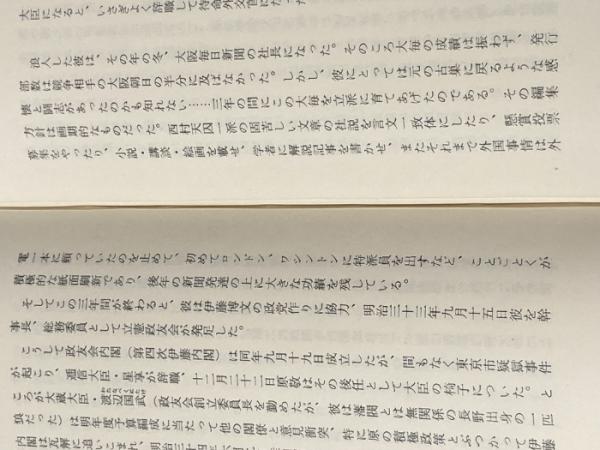 大臣になると、いさぎよく辞職して待命外交官になった
浪人した彼は、その年の冬、大阪毎日新聞の社長になった。そのころ大毎の成績は振わず、発行
部数は競争相手の大阪朝日の半分に及ばなかった。しかし、彼にとっては元の古巣に戻るような感
懐と闘志があったのかも知れない……三年の間にこの大毎を立派に育てあげたのである。その編集
方針は画期的なものだった。西村天囚一派の固苦しい文章の社説を言文一致体にしたり、懸賞投票
募集をやったり、小説・講談・絵画を載せ、学者に解説記事を書かせ、またそれまで外国事情は外
電一本に頼っていたのを止めて、初めてロンドン、ワシントンに特派員を出すなど、ことごとくが
積極的な紙面刷新であり、後年の新聞発達の上に大きな功績を残している。
そしてこの三年間が終わると、彼は伊藤博文の政党作りに協力、明治三十三年九月十五日彼を幹
事長、総務委員として立憲政友会が発足した。
こうして政友会内閣（第四次伊藤内閣）は同年九月十九日成立したが、間もなく東京市疑獄事件
が起こり、逓信大臣・星亨が辞職、十二月二十二日原敬はその後任として大臣の椅子についた。と
ころが大蔵大臣・渡辺国武（政友会創立委員長を勤めたが、彼は藩閥とは無関係の長野出身の一匹
狼だった）は明年度予算編成に当たって他の閣僚と意見衝突、特に原の積極政策とぶつかって伊藤
内閣は瓦解に追いこまれ、明治三十四年六月